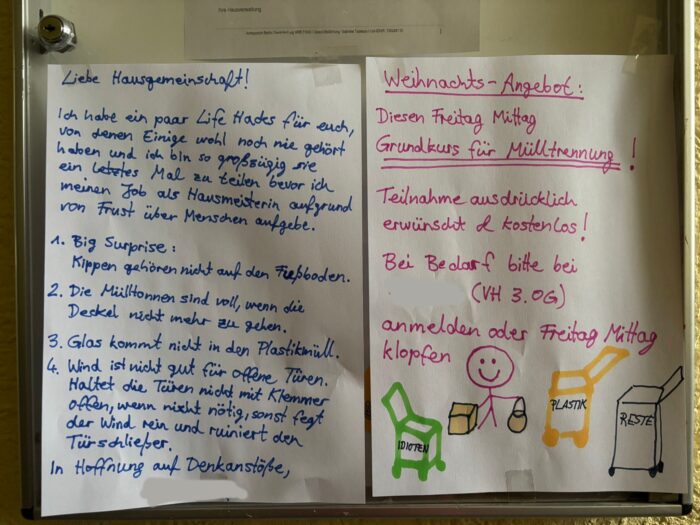 Ihre Hausverwaltung
Liebe Hausgemeinschaft!
Ich habe ein paar Life Hacks für euch,
von denen Einige wohl noch nie gehört
haben und ich bin so großzügig sie
ein letztes Mal zu teilen, bevor ich
meinen Job als Hausmeisterin aufgrund
von Frust über Menschen aufgebe.
1. Big Surprise:
Kippen gehören nicht auf den Fußboden.
2. Die Mülltonnen sind voll, wenn die
Deckel nicht mehr zu gehen.
3. Glas kommt nicht in den Plastikmüll.
4. Wind ist nicht gut für offene Türen.
Haltet die Türen nicht mit Klemmer
offen, wenn nicht nötig, sonst fegt
der Wind rein und ruiniert den
Türschließer.
In Hoffnung auf Denkanstöße,
Weihnachts-Angebot:
Diesen Freitag Mittag
Grundkurs für Mülltrennung!
Teilnahme ausdrücklich
erwünscht & kostenlos!
Bei Bedarf bitte bei
(VH 3.OG)
anmelden oder Freitag Mittag
klopfen
IDIOTEN
PLASTIK
RESTE